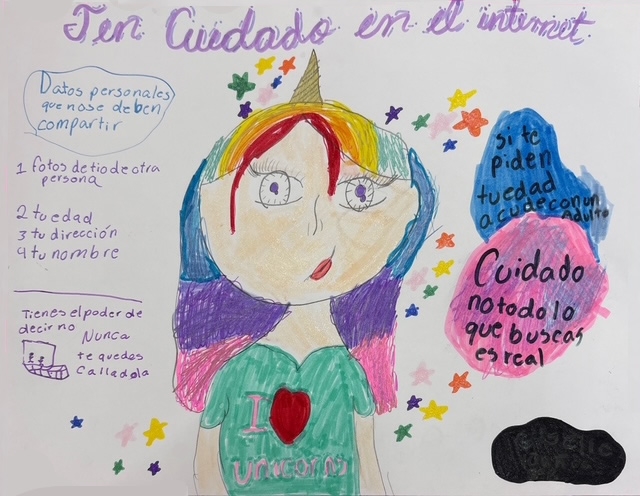 Ten Cuidado en el internet
Datos personales
que no se deben
compartir
1 fotos de tio de otra
persona
2 tu edad
3 tu dirección
4 tu nombre
Tienes el poder de
decir no Nunca
te quedes
Callad o/a
si te
piden
tu edad
acude con un
Adulto
Cuidado
no todo lo
que buscas
es real
I
unicorns